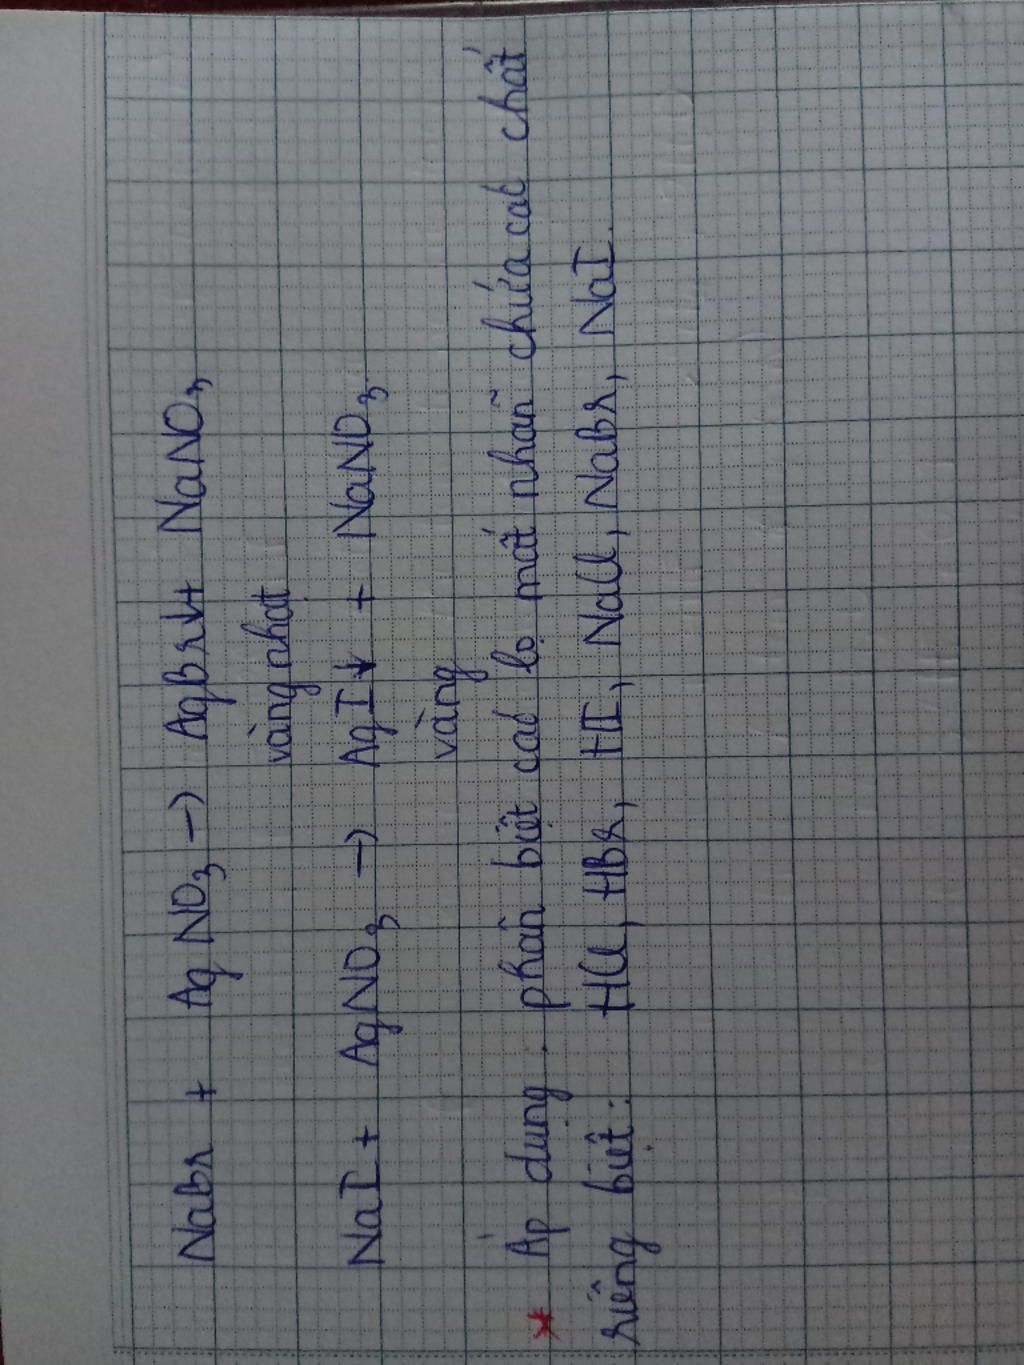 NaBr + AgNO3 → AgBr↓ + NaNO3
vàng nhạt
NaI + AgNO3 → AgI↓ + NaNO3
vàng
* Áp dụng. phân biệt các lọ mất nhãn chứa các chất
riêng biệt: HCl, HBr, HI, NaCl, NaBr, NaI.